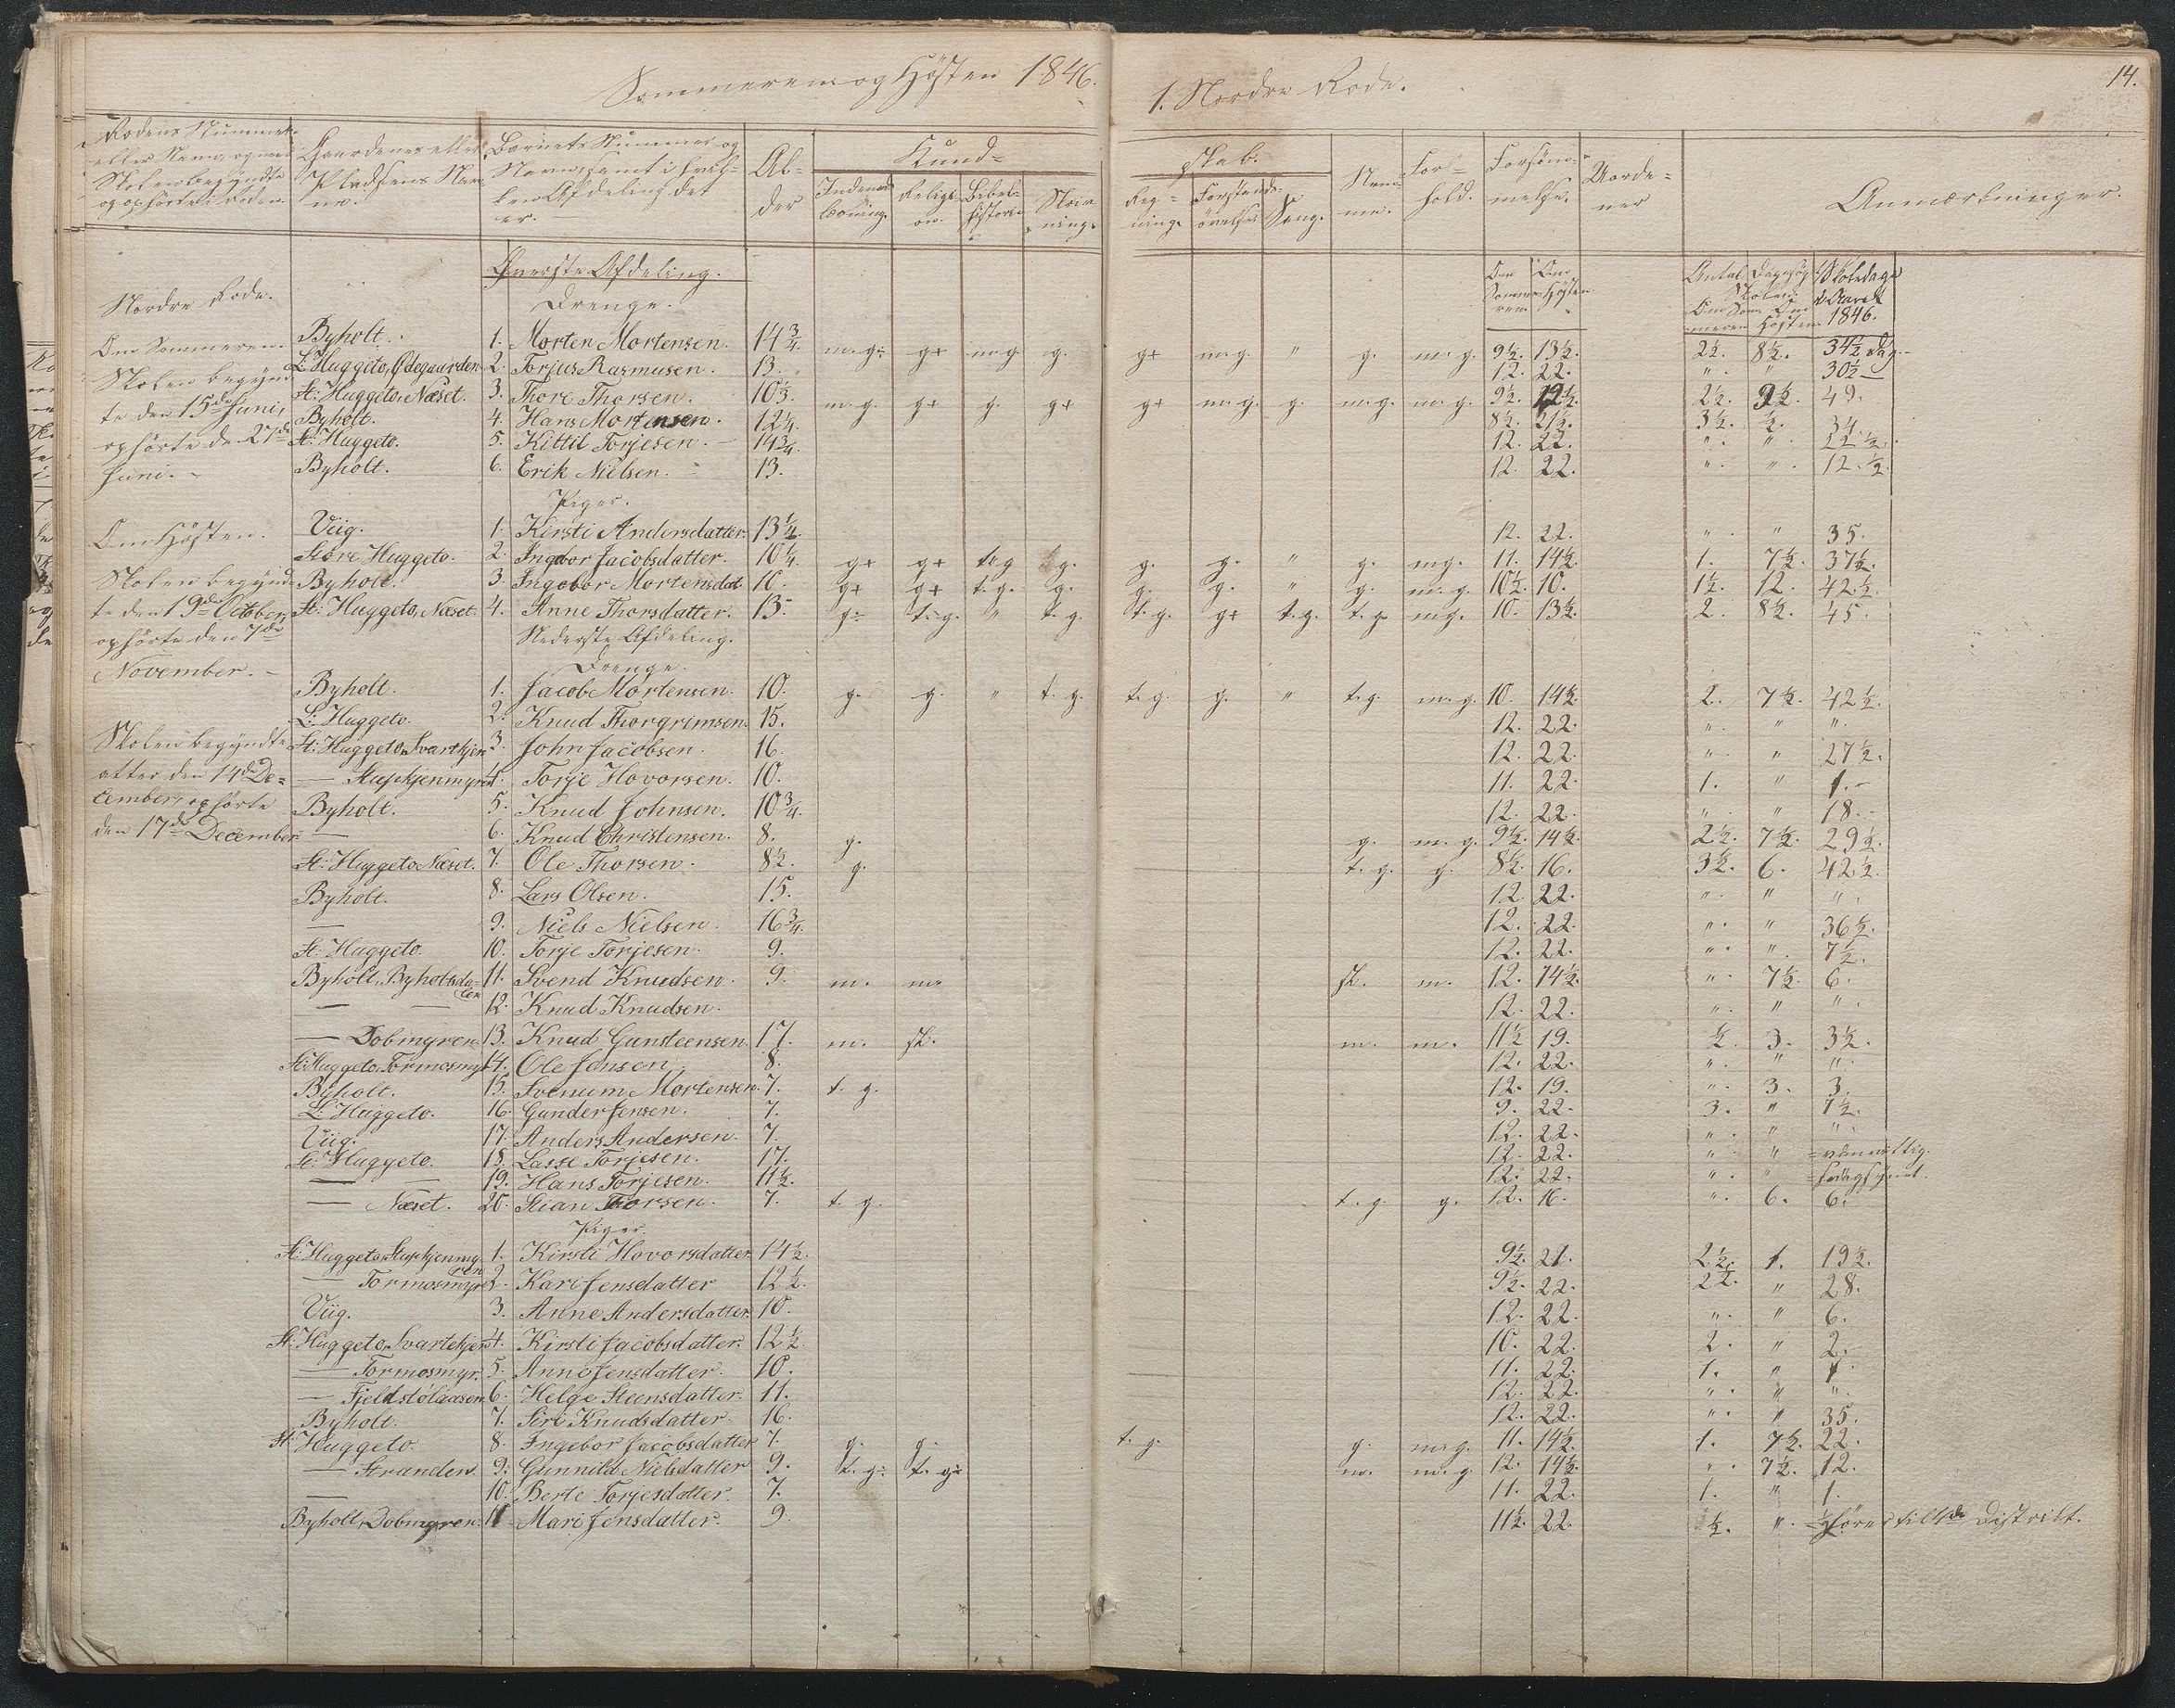 Sommeren og Høsten 1846.
1. Nordre Rode.
14.
Rodens Nummer eller Navn, og naar Skolen begyndte og ophørte i Roden.
Gaardenes eller Pladsens Navne.
Barnets Nummer og Navn, samt i hvilken Afdeling det er.
Alder
Kundskab.
Indenadlæsning.
Religion.
Bibelhistorie
Skrivning.
Regning.
Forstandsøvelse.
Sang.
Nemme.
Forhold.
Forsømmelse.
Uordener
Anmærkninger.
Øverste Afdeling.
Drenge.
Om Sommeren
Om Høsten
Antal Dage søgt Skolen:
Om Sommeren
Om Høsten
Skoledage i Aaret 1846.
Nordre Rode.
Om Sommeren.
Skolen begyndte den 15de Juni, ophørte den 27de Juni.
Byholt. 1. Morten Mortensen. 14 3/4 m. g÷ g+ m. g. g. g+ m. g. " g. m. g. 9 1/2. 13 1/2. 2 1/2. 8 1/2. 34 1/2 Dag.
L: Huggeto, Ødegaarden 2. Torjus Rasmusen. 13. 12. 22. " " 30 1/2
St: Huggeto, Næset. 3. Thore Thorsen. 10 1/2. m. g. g+ g. g+ g+ m. g. g. m. g. m. g. 9 1/2. 12 1/2. 2 1/2. 9 1/2. 49.
Byholt. 4. Hans Mortensen. 12 1/4. 8 1/2. 21 1/2. 3 1/2. 1/2. 34.
St: Huggeto. 5. Kittil Torjesen. 14 3/4. 12. 22. " " 22 1/2.
Byholt. 6. Erik Nielsen. 13. 12. 22. " " 12 1/2.
Piger.
Om Høsten.
Skolen begyndte den 19de October, ophørte den 7de November.
Viig. 1. Kirsti Andersdatter. 13 1/4. 12. 22. " " 35.
Store Huggeto. 2. Ingbor Jacobsdatter. 10 1/4. g+ g+ t. g g. g. g. " g. mg. 11. 14 1/2. 1. 7 1/2. 37 1/2.
Byholt. 3. Ingebor Mortensdat. 10. g+ g+ t. g. g. g. g. " g. m. g. 10 1/2. 10. 1 1/2. 12. 42 1/2.
St: Huggeto, Næset. 4. Anne Thorsdatter. 13. g÷ t÷g. " t. g. t. g. g+ t. g. t. g. mg. 10. 13 1/2. 2. 8 1/2. 45.
Nederste Afdeling.
Drenge.
Byholt. 1. Jacob Mortensen. 10. g. g. " t. g. t. g. g. " t. g. m. g. 10. 14 1/2. 2. 7 1/2. 42 1/2.
L: Huggeto. 2. Knud Thorgrimsen. 15. 12. 22. " " "
Skolen begyndte atter den 14de December, ophørte den 17de December
St: Huggeto Svartkjen 3. John Jacobsen. 16. 12. 22. " " 27 1/2.
— Stupkjenmyren 4. Torje Hovorsen. 10. 11. 22. 1. " 1.
Byholt. 5. Knud Johnsen. 10 3/4. 12. 22. " " 18.
— 6. Knud Christensen. 8. g. g. m. g. 9 1/2. 14 1/2. 2 1/2. 7 1/2. 29 1/2.
St: Huggeto Næset. 7. Ole Thorsen. 8 1/2. g. t. g. g. 8 1/2. 16. 3 1/2. 6. 42 1/2.
Byholt. 8. Lars Olsen. 15. 12. 22. " " "
— 9. Niels Nielsen. 16 3/4. 12. 22. " " 36 1/2.
St: Huggeto. 10. Torje Torjesen. 9. 12. 22. " " 7 1/2.
Byholt, Byholtsdalen 11. Svend Knudsen. 9. m. m. sl. m. 12. 14 1/2. " 7 1/2. 6.
— — 12. Knud Knudsen. 12. 22. " " "
— Dobmyren. 13. Knud Gunsteensen. 17. m. sl. m. m. 11 1/2 19. 1/2. 3. 3 1/2.
St: Huggeto, Tormosmyr 14. Ole Jensen. 8. 12. 22. " " "
Byholt. 15. Svenum Mortensen. 7. t. g. 12. 19. " 3. 3.
L: Huggeto. 16. Gunder Jensen. 7. 9. 22. 3. " 7 1/2.
Viig. 17. Anders Andersen. 7. 12. 22. " " "
St: Huggeto. 18. Lasse Torjesen. 17. 12. 22. " "
— — 19. Hans Torjesen. 11 1/2. 12. 22. " "
— Næset. 20. Stian Thorsen. 7. t. g. t. g. g. 12. 16. " 6. 6.
Piger
St: Huggeto, Stupkjenmyren 1. Kirsti Hovorsdatter. 14 1/2. 9 1/2. 21. 2 1/2. 1. 19 1/2.
— Tormosmyr 2. Kari Jensdatter 12 1/2. 9 1/2. 22. 2 1/2. " 28.
Viig. 3. Anne Andersdatter. 10. 12. 22. " " 6.
St: Huggeto, Svartekjen 4. Kirsti Jacobsdatter. 12 1/2. 10. 22. 2. " 2.
— Tormosmyr. 5. Anne Jensdatter. 10. 11. 22. 1. " 1.
— Fjeldstølaasen 6. Helge Steensdatter. 11. 12. 22. " " "
Byholt. 7. Siri Knudsdatter. 16. 12. 22. " " 35.
St: Huggeto. 8. Ingebor Jacobsdatter 7. g. g. t. g. g. m. g. 11. 14 1/2. 1. 7 1/2. 22.
— Stranden. 9. Gunnild Nielsdatter 9. t. g÷ t. g÷ m. m. g 12. 14 1/2. " 7 1/2. 12.
— 10. Berte Torjesdatter. 7. 11. 22. 1. " 1.
Byholt, Dobmyren. 11 Mari Jensdatter. 9. 11 1/2. 22. 1/2. " 1/2 hører til Distrikt.